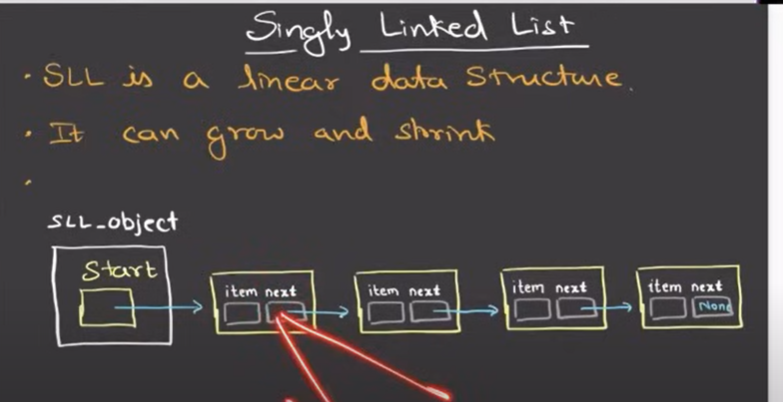 Singly Linked List
• SLL is a linear data Structure.
• It can grow and shrink
•
SLL_object
Start
item next
item next
item next
item next
None